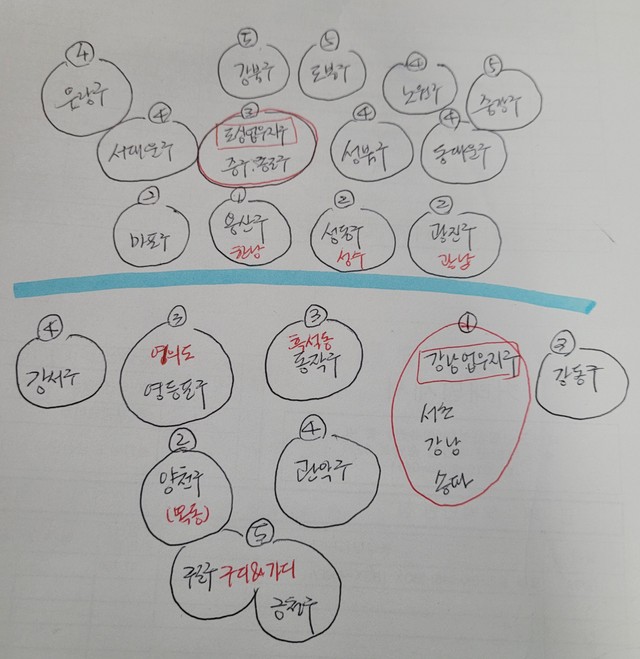 ④
은평구
⑤
강북구
⑤
도봉구
④
노원구
⑤
중랑구
④
서대문구
②
도심업무지구
중구.종로구
④
성북구
④
동대문구
②
마포구
①
용산구
한남
②
성동구
성수
②
광진구
광남
④
강서구
③
여의도
영등포구
③
흑석동
동작구
①
강남업무지구
서초
강남
송파
③
강동구
②
양천구
(목동)
④
관악구
⑤
구로구 구디&가디
금천구